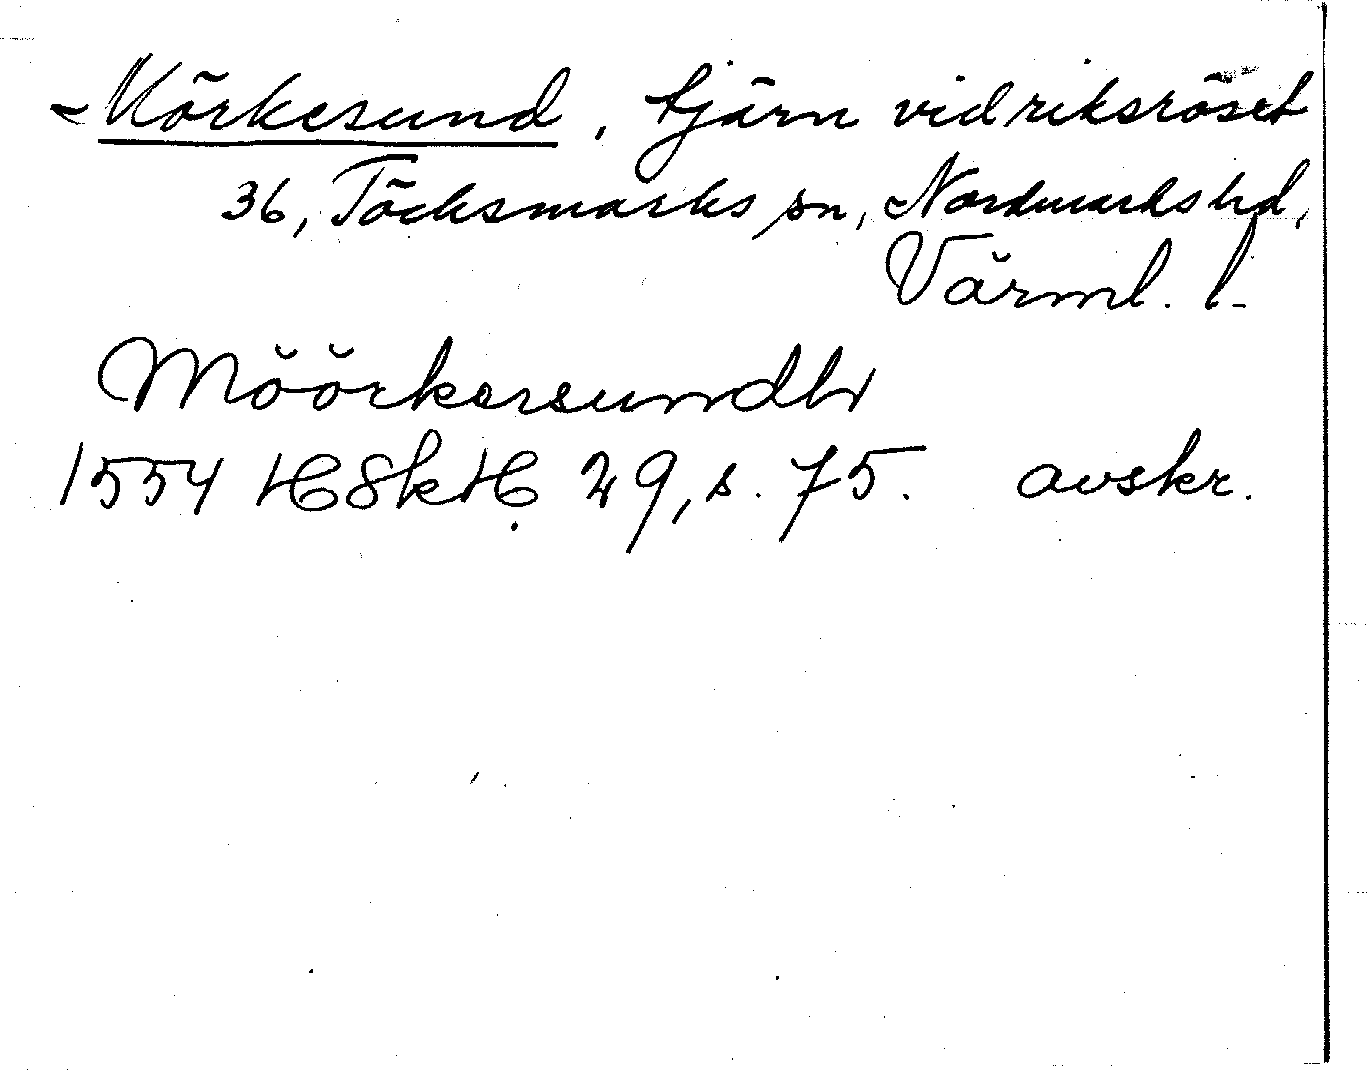 Mörkesund, tjärn vid riksröset
36, Töcksmarks sn, Nordmarks hd,
Värml. l.
Möörkesesundh
1554 HSH 29, s. 75. avskr.